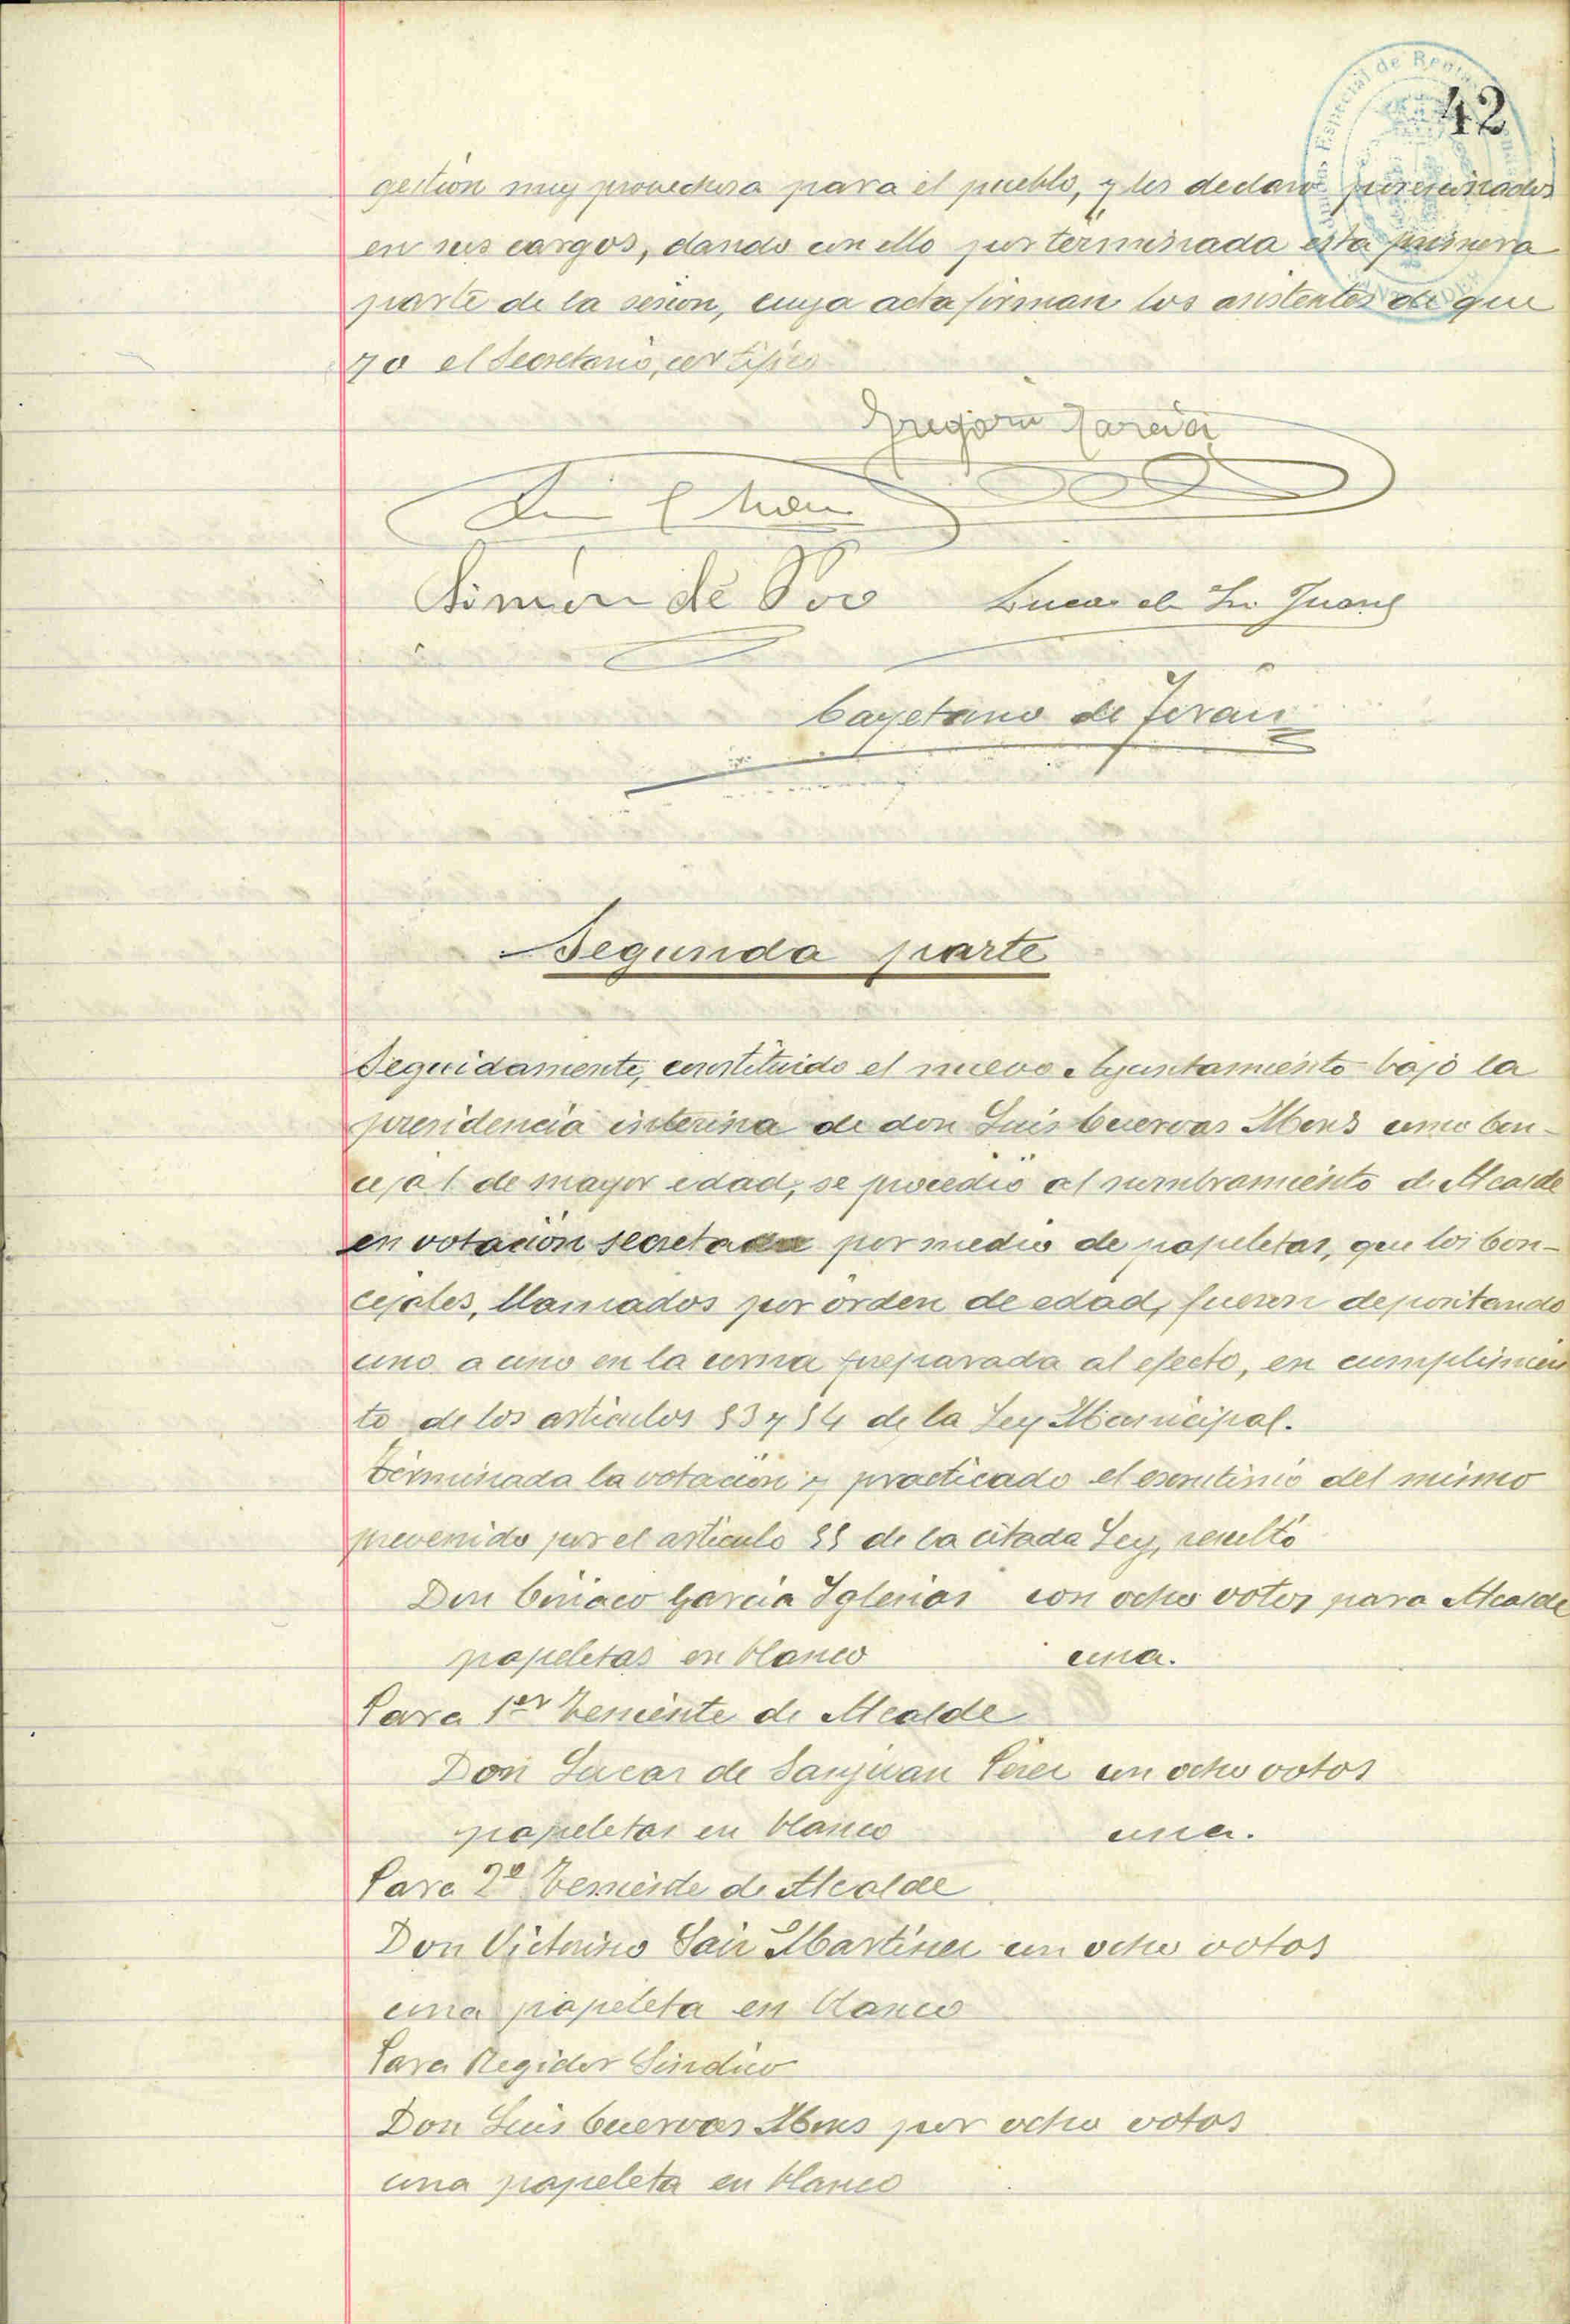 42
gestion muy provechosa para el pueblo, y les declaro posesionados
en sus cargos, dando con ello por terminada esta primera
parte de la sesion, cuya acta firman los asistentes de que
yo el Secretario, certifico
Gregorio Garcia
Simón de Poo Lucas de Sn. Juan
Cayetano de Terán
Segunda parte
Seguidamente, constituido el nuevo Ayuntamiento bajo la
presidencia interina de don Luis Cuervas Mons como Con-
cejal de mayor edad, se procedió al nombramiento de Alcalde
en votación secreta por medio de papeletas, que los Con-
cejales, llamados por órden de edad, fueron depositando
uno a uno en la urna preparada al efecto, en cumplimien
to de los articulos 53 y 54 de la Ley Municipal.
Terminada la votación y practicado el escrutinio del mismo
prevenido por el articulo 55 de la citada Ley, resultó
Don Ciriaco Garcia Iglesias con ocho votos para Alcalde
papeletas en blanco una.
Para 1er Teniente de Alcalde
Don Lucas de Sanjuan Pérez con ocho votos
papeletas en blanco una.
Para 2º Teniente de Alcalde
Don Victorino Saiz Martinez con ocho votos
una papeleta en blanco
Para Regidor Sindico
Don Luis Cuervas Mons por ocho votos
una papeleta en blanco